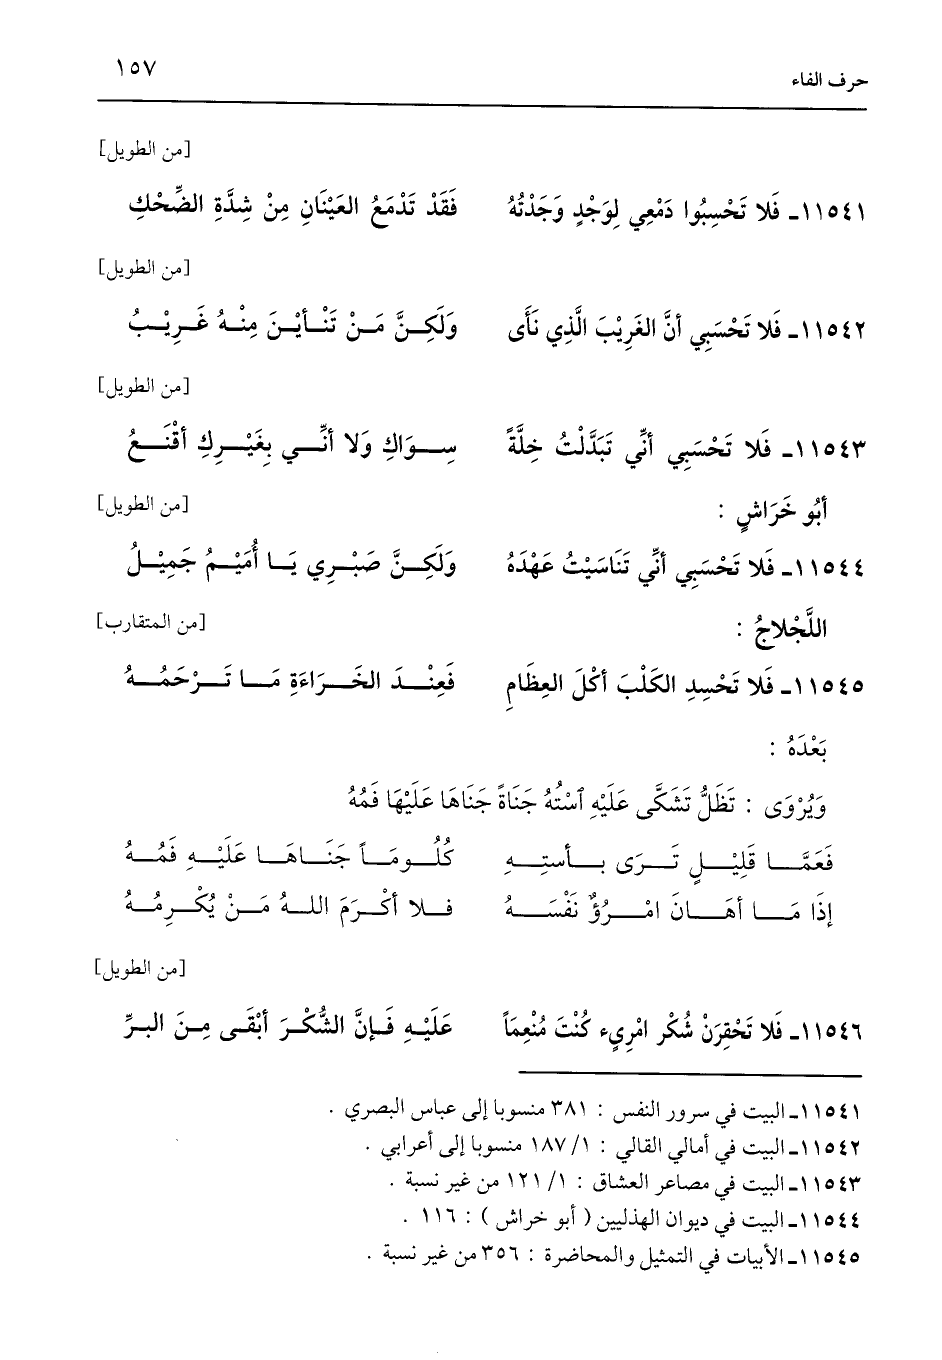 حرف الفاء ١٥٧
[من الطويل]
١١٥٤١ـ فَلا تَحْسِبُوا دَمْعِي لِوَجْدٍ وَجَدْتُهُ فَقَدْ تَدْمَعُ العَيْنَانِ مِنْ شِدَّةِ الضِّحْكِ
[من الطويل]
١١٥٤٢ـ فَلا تَحْسَبِي أنَّ الغَرِيْبَ الَّذِي نَأَى وَلَكِنَّ مَنْ تَنْأيْنَ مِنْهُ غَرِيْبُ
[من الطويل]
١١٥٤٣ـ فَلا تَحْسَبِي أنِّي تَبَدَّلْتُ خِلَّةً سِوَاكِ وَلا أنِّي بِغَيْرِكِ أقْنَعُ
أبُو خَرَاشٍ : [من الطويل]
١١٥٤٤ـ فَلا تَحْسَبِي أنِّي تَنَاسَيْتُ عَهْدَهُ وَلَكِنَّ صَبْرِي يَا أُمَيْمُ جَمِيْلُ
اللَّجْلاجُ : [من المتقارب]
١١٥٤٥ـ فَلا تَحْسِدِ الكَلْبَ أكْلَ العِظَامِ فَعِنْدَ الخَرَاءَةِ مَا تَرْحَمُهُ
بَعْدَهُ :
وَيُرْوَى : تَظَلُّ تَشَكَّى عَلَيْهِ ٱسْتُهُ جَنَاةً جَنَاهَا عَلَيْهَا فَمُهُ
فَعَمَّا قَلِيْلٍ تَرَى بأستِهِ كُلُومَاً جَنَاهَا عَلَيْهِ فَمُهُ
إذَا مَا أهَانَ امْرُؤٌ نَفْسَهُ فلا أكْرَمَ اللهُ مَنْ يُكْرِمُهُ
[من الطويل]
١١٥٤٦ـ فَلا تَحْقِرَنْ شُكْر امْرِيء كُنْتَ مُنْعِمَاً عَلَيْهِ فَإنَّ الشُّكْرَ أبْقَى مِنَ البرِّ
١١٥٤١ـ البيت في سرور النفس : ٣٨١ منسوبا إلى عباس البصري .
١١٥٤٢ـ البيت في أمالي القالي : ١/ ١٨٧ منسوبا إلى أعرابي .
١١٥٤٣ـ البيت في مصاعر العشاق : ١/ ١٢١ من غير نسبة .
١١٥٤٤ـ البيت في ديوان الهذليين ( أبو خراش ) : ١١٦ .
١١٥٤٥ـ الأبيات في التمثيل والمحاضرة : ٣٥٦ من غير نسبة .